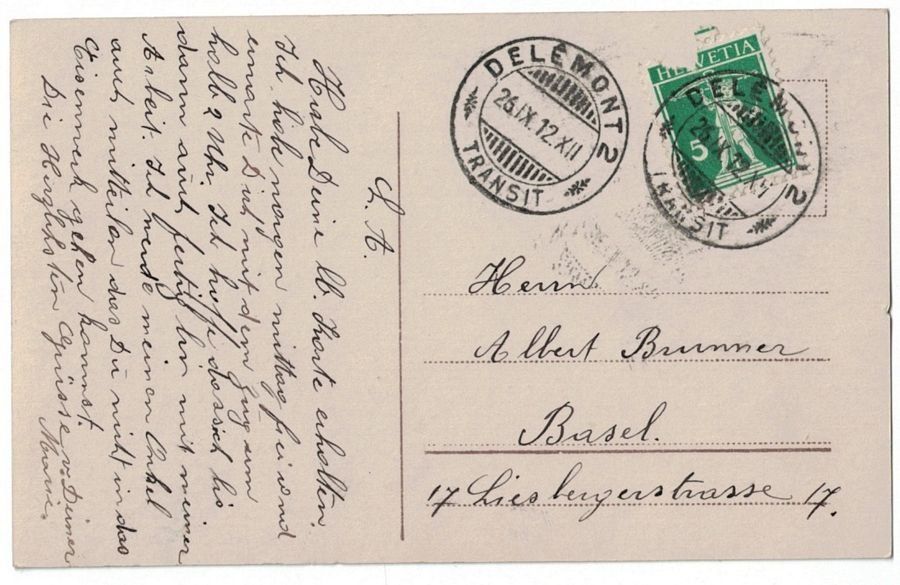 L. A.
Habe Deine lb. Karte erhalten.
Ich habe morgen mittag frei und
erwarte Dich mit dem Zug um
halb 2 Uhr. Ich hoffe dass ich bis
dann auch fertig bin mit meiner
Arbeit. Ich werde meinen Onkel
auch mitteilen das Du nicht in das
gehen kannst.
Die Herzlichsten Grüsse v. Deiner
DELÉMONT 2
25.IX.12.XII
TRANSIT
HELVETIA
5
DELÉMONT 2
TRANSIT
Herrn
Albert Brunner
Basel.
17 Liesbergerstrasse 17.